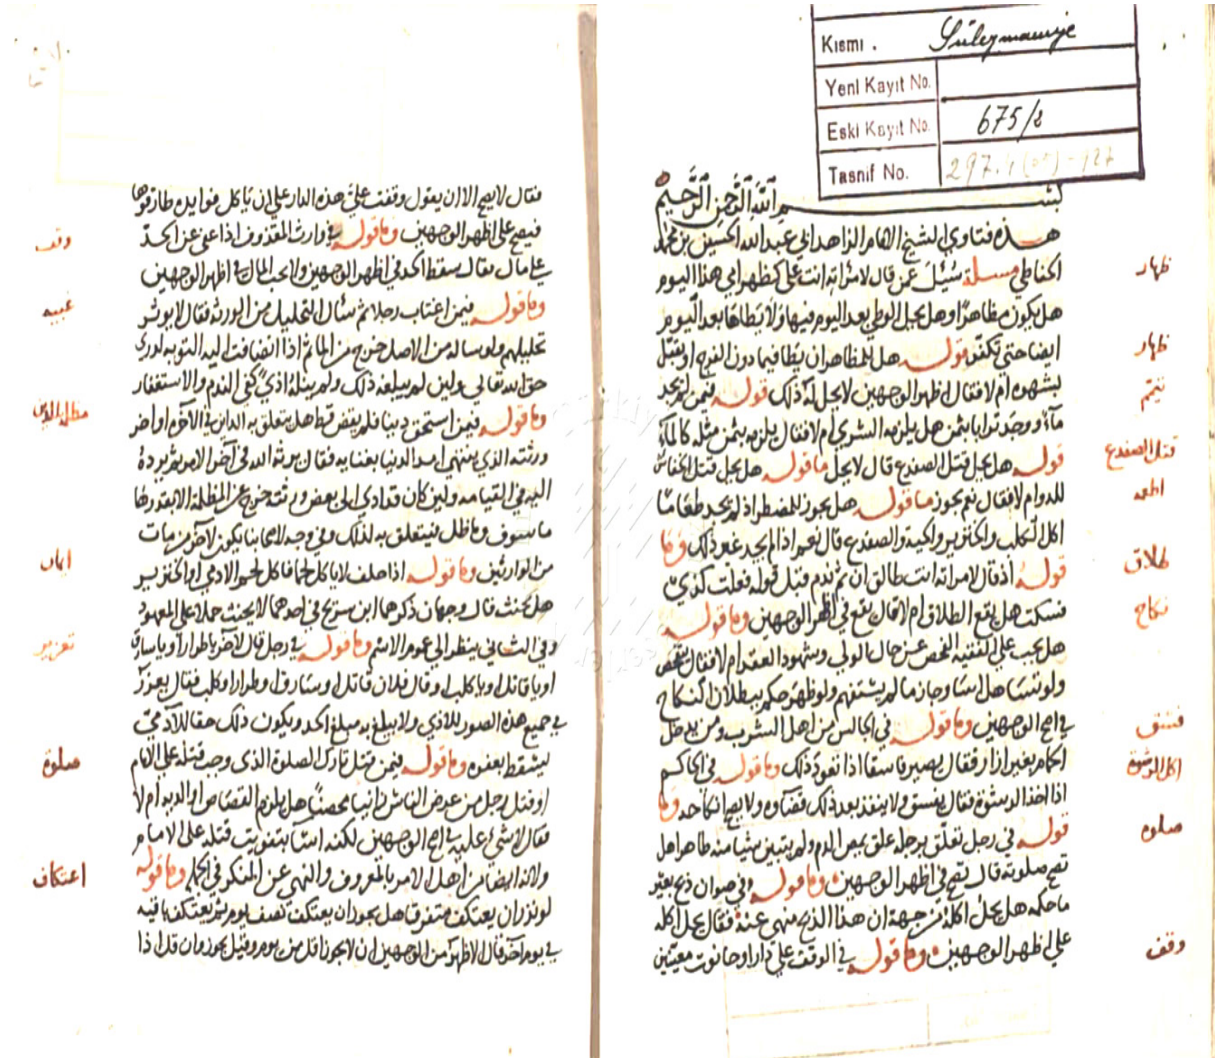 Kısmı . Süleymaniye
Yeni Kayıt No.
Eski Kayıt No. 675/2
Tasnif No. 297.4
بسم الله الرحمن الرحيم
هذه فتاوي الشيخ الامام الزاهد ابي عبد الله الحسين بن محمد
الحناطي مسئلة سُئِلَ عمن قال لامراته انت علي كظهر ابي هذا اليوم
هل يكون مظاهرًا وهل يحل الوطي بعد اليوم فيها ولا يطاها بعد اليوم
ايضا حتى تكفر قوله هل للمظاهر ان يطا فيما دون الفرج او يقبل
بشهوه ام لا فقال اظهر الوجهين لا يحل له ذلك قوله فيمن لم يجد
مآءً ووجد ترابا بثمن هل يلزمه الشري ام لا فقال يلزمه بثمن مثله كالماء
قوله هل يحل قتل الضفدع قال لا يحل ما قوله هل يحل قتل الخفاش
للدوام لا فقال نعم يجوز ما قوله هل يجوز للمضطر اذ لم يجد طعامًا
اكل الكلب والخنزير والحية والضفدع قال نعم اذا لم يجد غير ذلك وما
قوله اذ قال لامراته انت طالق ان ثم ندم قبل قوله فعلت كذي
فسكت هل يقع الطلاق ام لا قال يقع في اظهر الوجهين وما قوله
هل يجب علي الفقيه الفحص عن حال الولي وشهود العقد ام لا فقال
ولو نسا هل اسا وجاز ما لم يتهم ولو ظهر حكم ببطلان النكاح
في اصح الوجهين وما قوله في الجالس من اهل الشرب ومن يدخل
الحمام بغير ازار فقال يصير فاسقا اذا تعود ذلك وما قوله في الحاكم
اذا اخذ الرشوة فقال يفسق ولا ينفذ بعد ذلك قضاوه ولا يصح وما
قوله في رجل تعلق برجله علق يمص الدم ولم يتبين شيا منه طاهرا هل
تصح صلوته قال تصح في اظهر الوجهين وما قوله وفي حيوان ذبح بغير
ماحكه هل يحل اكله من جهة ان هذا الذبح منهي عنه فقال يحل اكله
علي اظهر الوجهين وما قوله في الوقف علي دار او حانوت معينين
ظهار
ظهار
تيمم
قتل الضفدع
اطعمه
طلاق
نكاح
فسق
اكل الرشوة
صلوه
وقف
فقال لا يصح الا ان يقول وقفت علي هذه الدار علي ان ياكل فوايده طارقوها
فيصح علي اظهر الوجهين وما قوله في وارث المقذوف اذا عفى عن الحد
علي مال فقال يسقط الحد في اظهر الوجهين ولا يجب المال في اظهر الوجهين
وما قوله فيمن اغتاب رجلا ثم سال التحليل من الورثه فقال لا يوثر
تحليلهم ولو ساله من الاصل خرج من الماثم اذا انضافت اليه التوبه لوري
حق الله تعالى ولين لم يبلغه ذلك ولم ينله اذيً كفى الندم والاستغفار
وما قوله فيمن استحق دينا فلم يقبض قط هل يتعلق به الداين في الاخره او اخر
ورثته الذي ينتهي امد الدنيا بفنايه فقال يرثه الله في آخر الامر ثم يرده
اليه في القيامه ولين كان قد ادي الى بعض ورثته خرج عن المظلمة الا بقدرها
ما سوف وماطل فيتعلق به لذلك وفي وجه لاصحابنا يكون لاخر من مات
من الوارثين وما قوله اذا حلف لا ياكل لحما فاكل لحم الادمي او الخنزير
هل يحنث قال وجهان ذكرهما ابن سريج في احدهما لا يحنث حملا على المعهود
وفي الثاني ينظر الي عموم الاسم وما قوله في رجل قال لاخر يا طرار او يا سارق
او يا قاتل او يا كلب او قال فلان قاتل او سارق او طرار او كلب فقال يعزر
في جميع هذه الصور للاذي ولا يبلغ به مبلغ الحد ويكون ذلك حقا للادمي
يسقط بعفوه وما قوله فيمن قتل تارك الصلوة الذى وجب قتله على الامام
او قتل رجل من عرض الناس زانيا محصنًا هل يلزم القصاص او الديه ام لا
فقال لا شي عليه في اصح الوجهين لكنه اسا بتفويت قتله على الامام
ولانه ايضا من اهل الامر بالمعروف والنهي عن المنكر في الجملة وما قوله
لو نذر ان يعتكف متفرقا هل يجوز ان يعتكف نصف يوم ثم يعتكف باقيه
في يوم اخر قال الاظهر من الوجهين ان لا يجوز اقل من يوم وقيل يجوز وان قل اذا
وقف
غيبه
مظلمة الدين
ايمان
تعزير
صلوة
اعتكاف